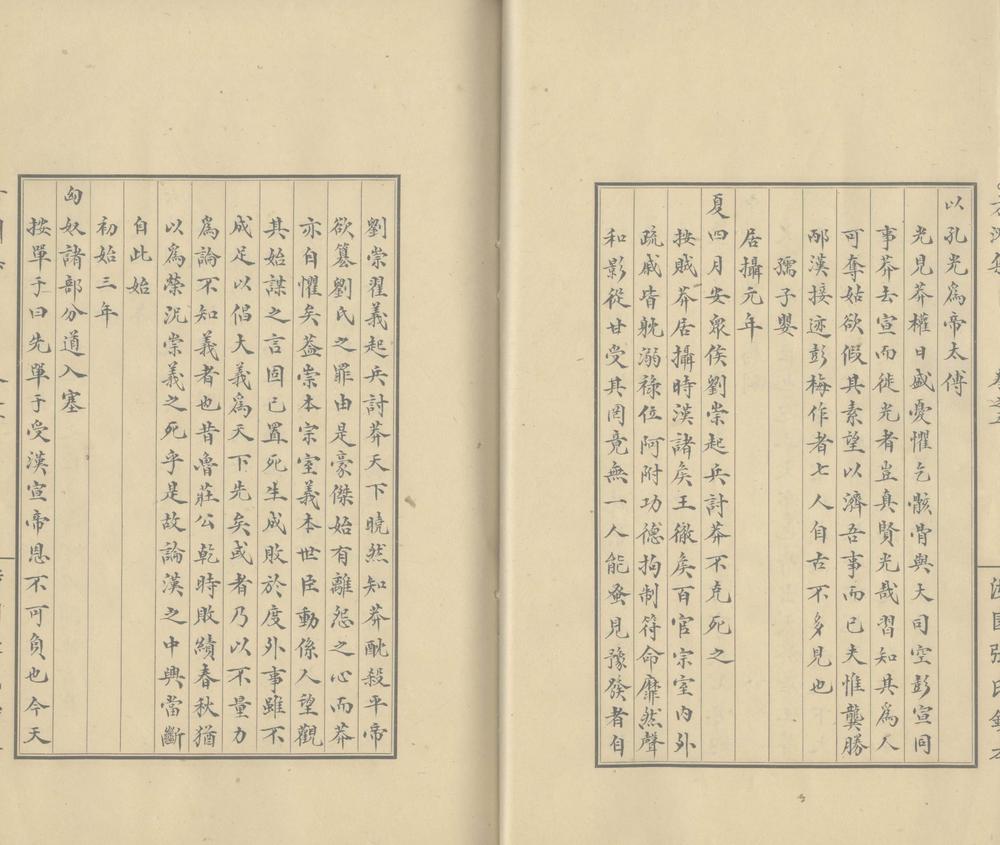 以孔光爲帝太傅
光見莽權日盛憂懼乞骸骨與大司空彭宣同
事莽去宣而徙光者豈真賢光哉習知其爲人
可奪姑欲假其素望以濟吾事而已夫惟龔勝
邴漢接迹彭梅作者七人自古不多見也
孺子嬰
居攝元年
夏四月安衆侯劉崇起兵討莽不克死之
按賊莽居攝時漢諸矦王徹矦百官宗室内外
疏戚皆躭溺祿位阿附功德拘制符命靡然聲
和影從甘受其罔竟無一人能蚤見豫發者自
劉崇翟義起兵討莽天下曉然知莽酖殺平帝
欲篡劉氏之罪由是豪傑始有離怨之心而莽
亦自懼矣葢崇本宗室義本世臣動係人望觀
其始謀之言固已置死生成敗於度外事雖不
成足以倡大義爲天下先矣或者乃以不量力
爲論不知義者也昔魯莊公乾時敗績春秋猶
以爲榮況崇義之死乎是故論漢之中興當斷
自此始
初始三年
匈奴諸部分道入塞
按單于曰先單于受漢宣帝恩不可負也今天